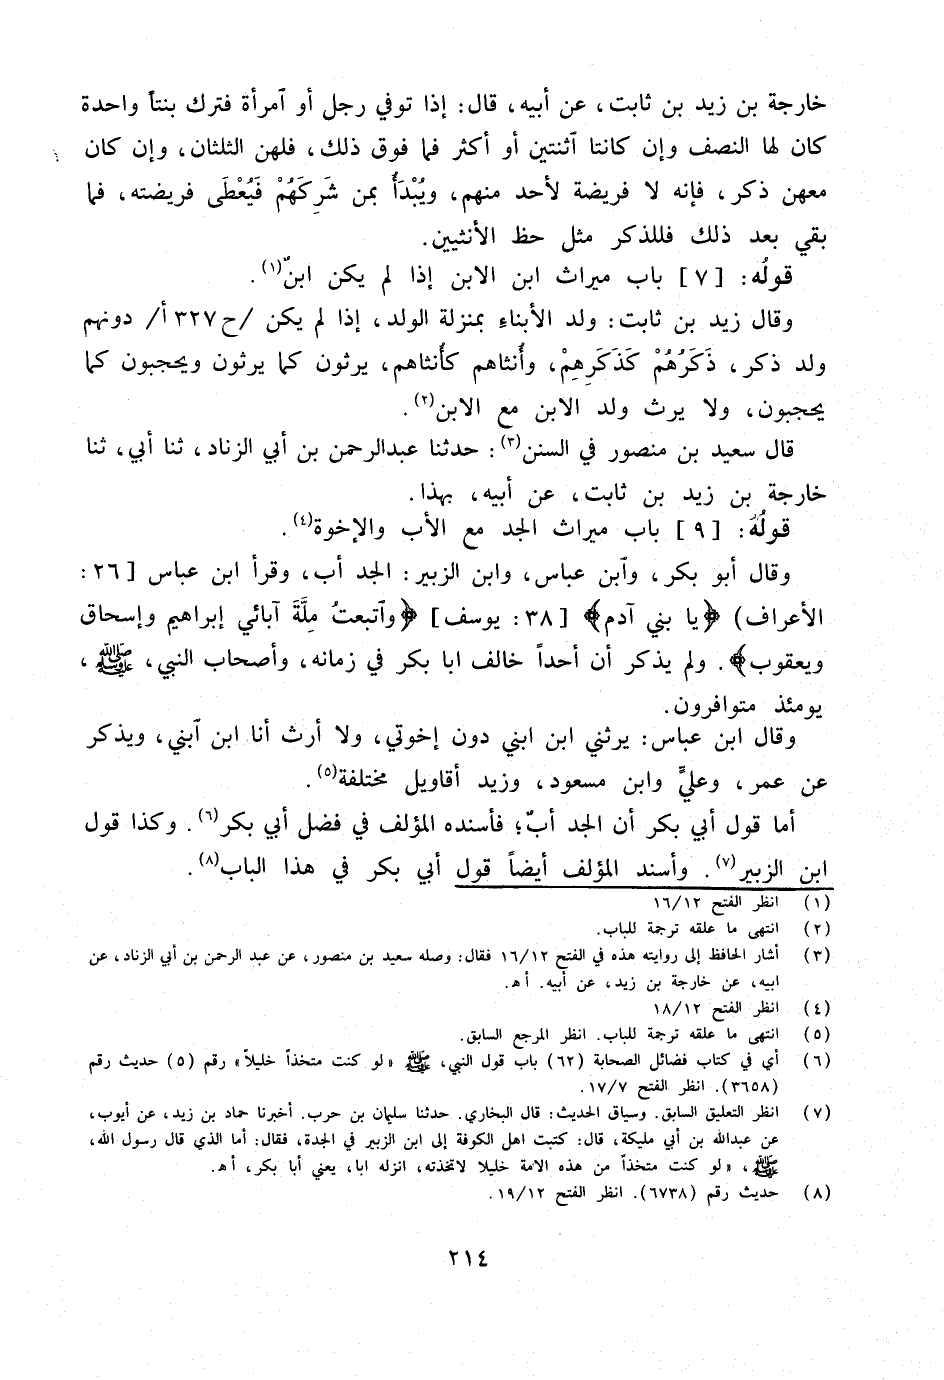 خارجة بن زيد بن ثابت، عن أبيه، قال: إذا توفي رجل أو آمرأة فترك بنتاً واحدة
كان لها النصف وإن كانتا آثنتين أو أكثر فما فوق ذلك، فلهن الثلثان، وإن كان
معهن ذكر، فإنه لا فريضة لأحد منهم، ويُبْدَأُ بمن شَرِكَهُمْ فَيُعْطَى فريضته، فما
بقي بعد ذلك فللذكر مثل حظ الأنثيين.
قولُه: [٧] باب ميراث ابن الابن إذا لم يكن ابنٌ(١).
وقال زيد بن ثابت: ولد الأبناء بمنزلة الولد، إذا لم يكن /ح٣٢٧أ/ دونهم
ولد ذكر، ذَكَرُهُمْ كَذَكَرِهِمْ، وأُنثاهم كأُنثاهم، يرثون كما يرثون ويحجبون كما
يحجبون، ولا يرث ولد الابن مع الابن(٢).
قال سعيد بن منصور في السنن(٣): حدثنا عبدالرحمن بن أبي الزناد، ثنا أبي، ثنا
خارجة بن زيد بن ثابت، عن أبيه، بهذا.
قولُه: [٩] باب ميراث الجد مع الأب والإخوة(٤).
وقال أبو بكر، وآبن عباس، وابن الزبير: الجد أب، وقرأ ابن عباس [٢٦:
الأعراف) ﴿يا بني آدم﴾ [٣٨: يوسف] ﴿وآتبعتُ مِلَّةَ آبائي إبراهيم وإسحاق
ويعقوب﴾. ولم يذكر أن أحداً خالف ابا بكر في زمانه، وأصحاب النبي، ﷺ،
يومئذ متوافرون.
وقال ابن عباس: يرثني ابن ابني دون إخوتي، ولا أرث أنا ابن آبني، ويذكر
عن عمر، وعليٍّ وابن مسعود، وزيد أقاويل مختلفة(٥).
أما قول أبي بكر أن الجد أبٌ؛ فأسنده المؤلف في فضل أبي بكر(٦). وكذا قول
ابن الزبير(٧). وأسند المؤلف أيضاً قول أبي بكر في هذا الباب(٨).
(١) انظر الفتح ١٦/١٢
(٢) انتهى ما علقه ترجمة للباب.
(٣) أشار الحافظ إلى روايته هذه في الفتح ١٦/١٢ فقال: وصله سعيد بن منصور، عن عبد الرحمن بن أبي الزناد، عن
ابيه، عن خارجة بن زيد، عن أبيه. أهـ.
(٤) انظر الفتح ١٨/١٢
(٥) انتهى ما علقه ترجمة للباب. انظر المرجع السابق.
(٦) أي في كتاب فضائل الصحابة (٦٢) باب قول النبي، ﷺ «لو كنت متخذاً خليلاً» رقم (٥) حديث رقم
(٣٦٥٨). انظر الفتح ١٧/٧.
(٧) انظر التعليق السابق. وسياق الحديث: قال البخاري. حدثنا سليمان بن حرب. أخبرنا حماد بن زيد، عن أيوب،
عن عبدالله بن أبي مليكة، قال: كتبت اهل الكوفة إلى ابن الزبير في الجدة، فقال: أما الذي قال رسول الله،
ﷺ، «لو كنت متخذاً من هذه الامة خليلا لاتخذته، انزله ابا، يعني أبا بكر، أهـ.
(٨) حديث رقم (٦٧٣٨). انظر الفتح ١٩/١٢.
٢١٤